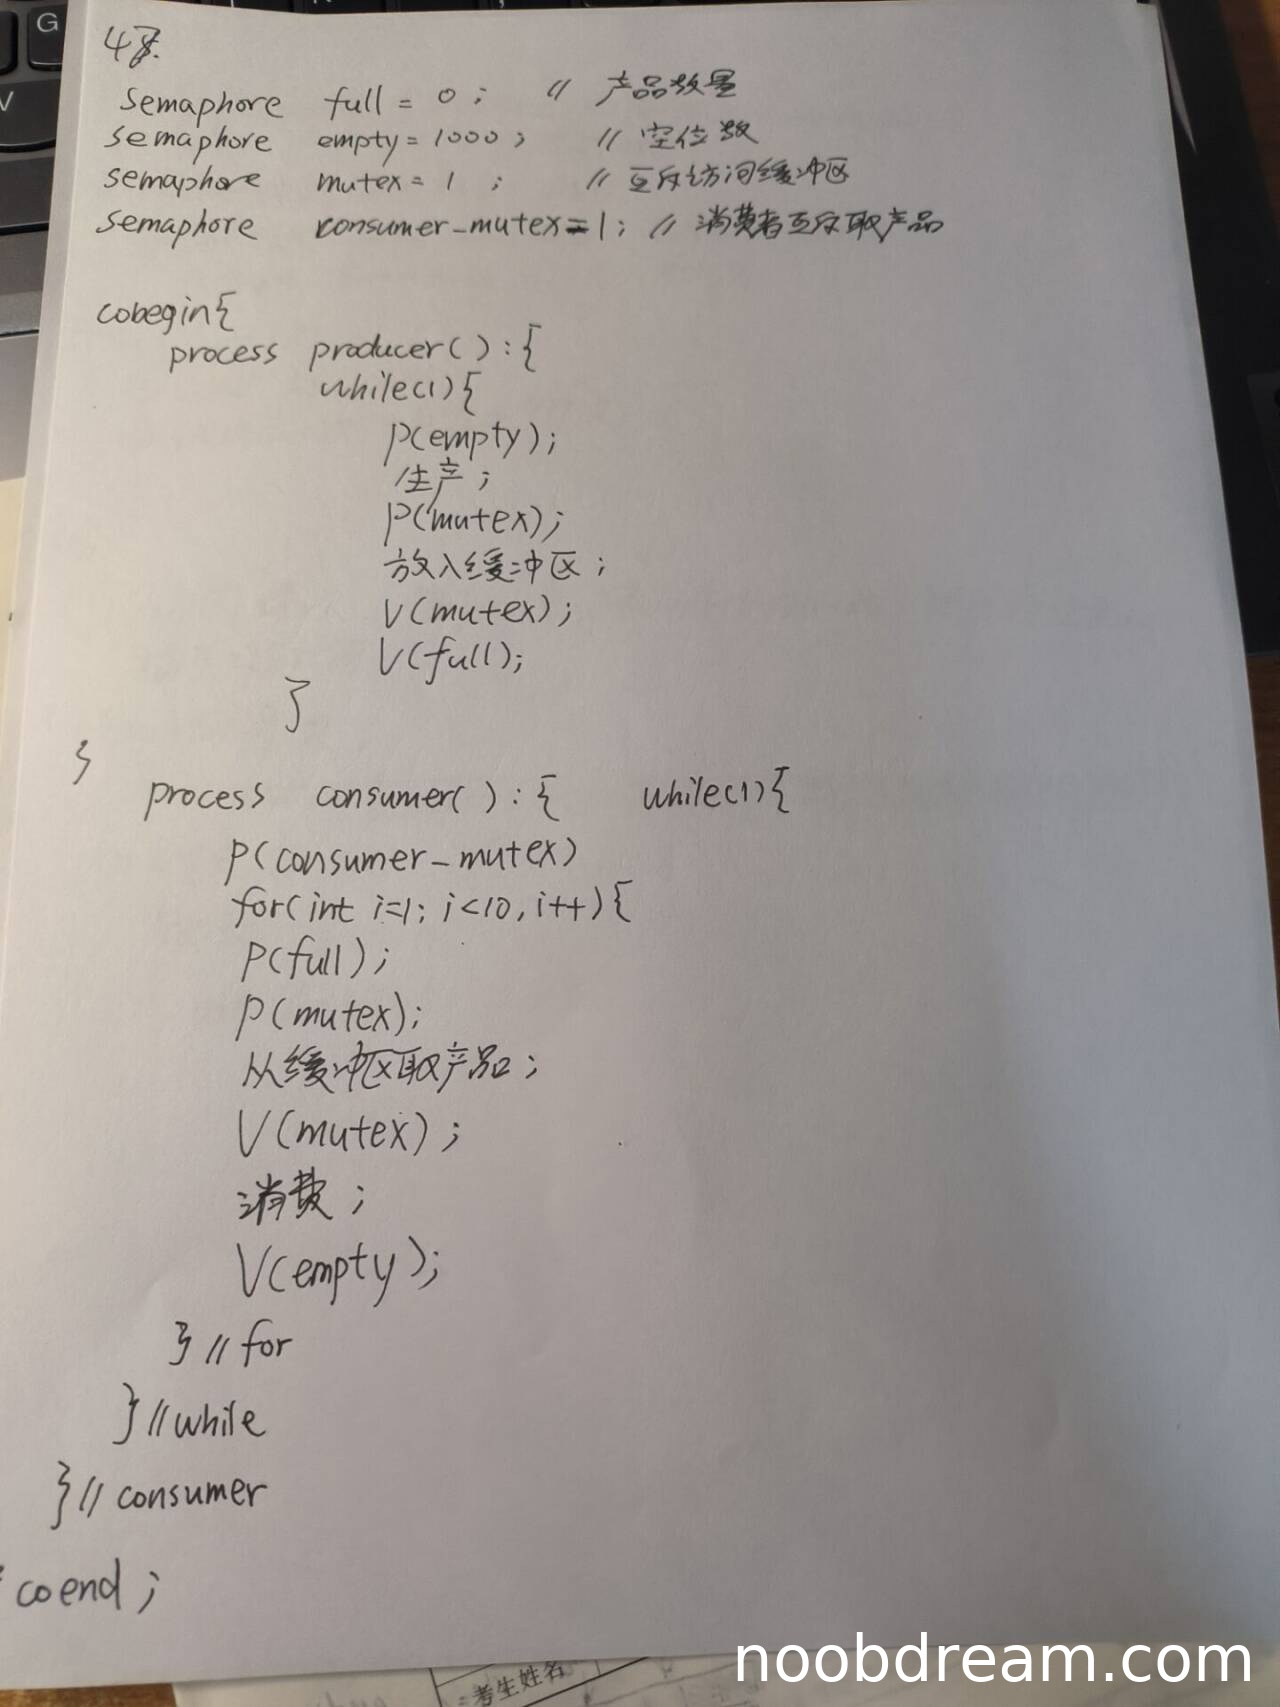 47.
semaphore full = 0 ; // 产品数量
semaphore empty = 1000 ; // 空位数
semaphore mutex = 1 ; // 互斥访问缓冲区
semaphore consumer_mutex = 1 ; // 消费者互斥取产品
cobegin{
process producer( ) : {
while(1){
P(empty);
生产 ;
P(mutex);
放入缓冲区 ;
V(mutex);
V(full);
}
}
process consumer( ) : { while(1){
P(consumer_mutex)
for(int i=1; i<10, i++){
P(full);
P(mutex);
从缓冲区取产品 ;
V(mutex) ;
消费 ;
V(empty);
} // for
} // while
} // consumer
coend ;
考生姓名
noobdream.com